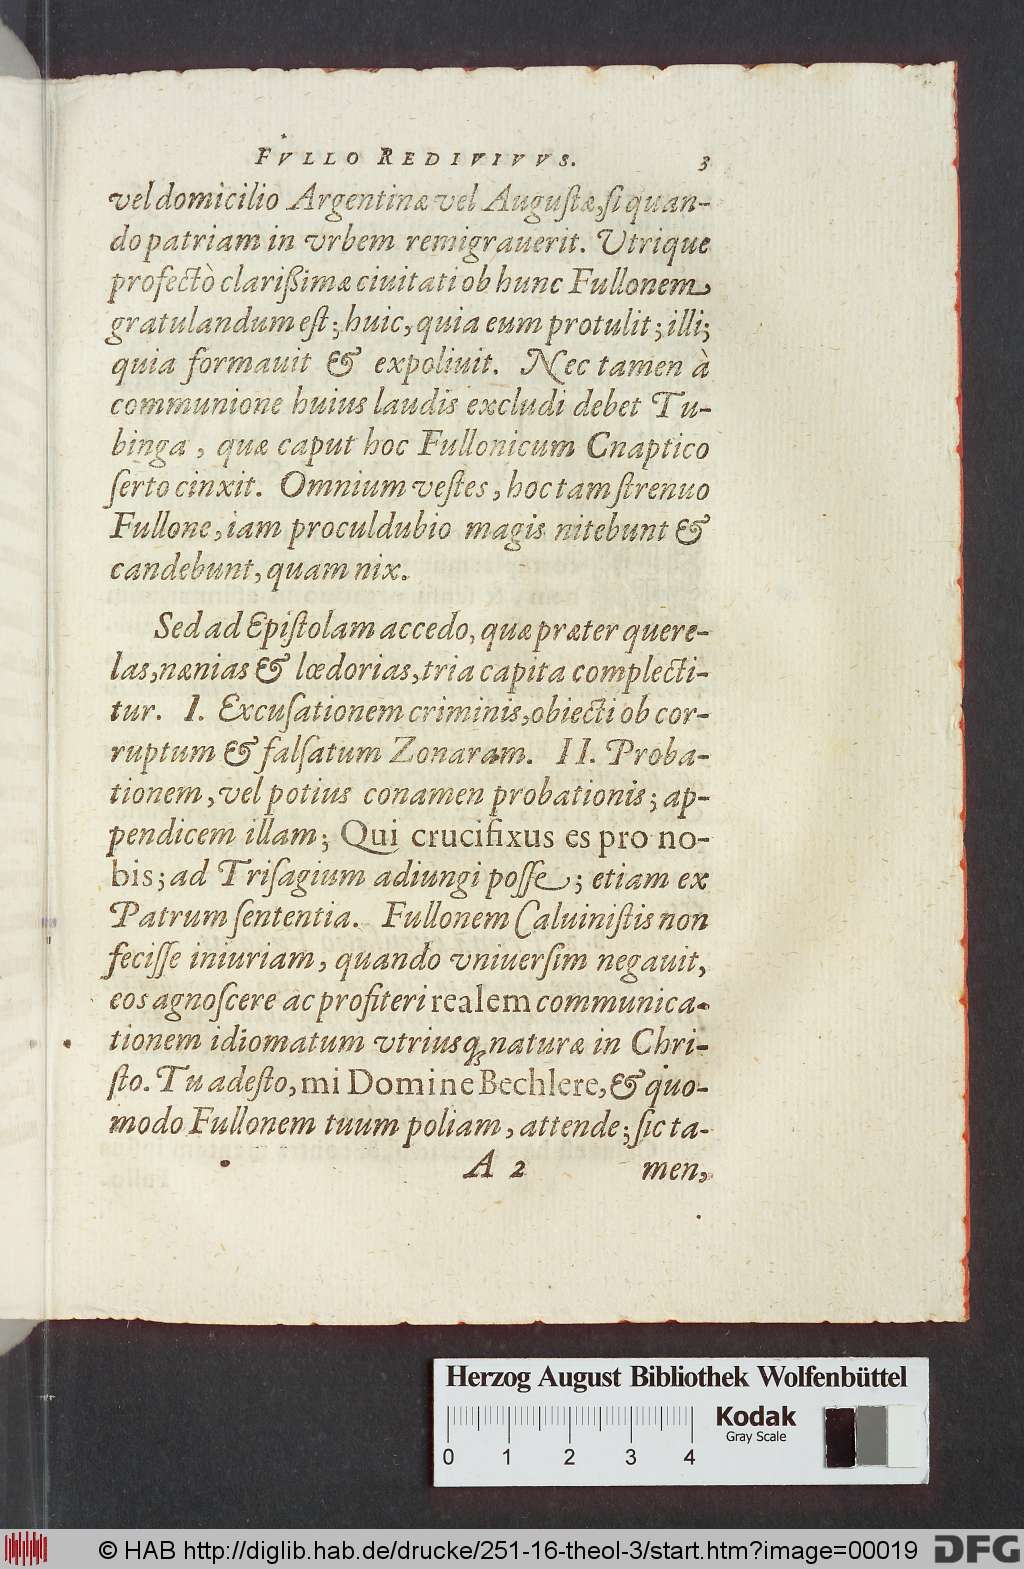 FVLLO REDIVIVVS. 3
vel domicilio Argentinæ vel Augustæ, si quan-
do patriam in vrbem remigrauerit. Vtrique
profectò clarißimæ ciuitati ob hunc Fullonem
gratulandum est; huic, quia eum protulit; illi;
quia formauit & expoliuit. Nec tamen à
communione huius laudis excludi debet Tu-
binga, quæ caput hoc Fullonicum Cnaptico
serto cinxit. Omnium vestes, hoc tam strenuo
Fullone, iam proculdubio magis nitebunt &
candebunt, quam nix.
Sed ad Epistolam accedo, quæ præter quere-
las, nænias & lœdorias, tria capita complecti-
tur. I. Excusationem criminis, obiecti ob cor-
ruptum & falsatum Zonaram. II. Proba-
tionem, vel potius conamen probationis; ap-
pendicem illam; Qui crucifixus es pro no-
bis; ad Trisagium adiungi posse; etiam ex
Patrum sententia. Fullonem Caluinistis non
fecisse iniuriam, quando vniuersim negauit,
eos agnoscere ac profiteri realem communica-
tionem idiomatum vtriusq; naturæ in Chri-
sto. Tu adesto, mi Domine Bechlere, & quo-
modo Fullonem tuum poliam, attende; sic ta-
A 2 men,
Herzog August Bibliothek Wolfenbüttel
Kodak
Gray Scale
0 1 2 3 4
© HAB http://diglib.hab.de/drucke/251-16-theol-3/start.htm?image=00019
DFG